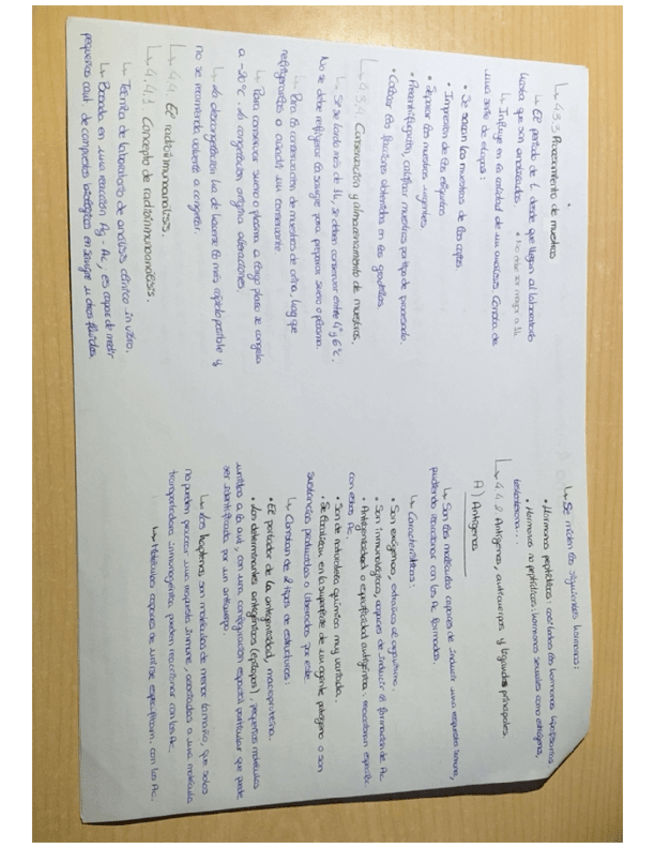 ↳ 4.3.3 Procesamiento de muestras
↳ El periodo de t. desde que llegan al laboratorio
hasta que son analizadas. * No debe ser mayor a 1h
↳ Influye en la calidad de un análisis. Consta de
una serie de etapas:
• Se sacan las muestras de las cajas.
• Impresión de las etiquetas
• Separar las muestras urgentes
• Precentrifugación, clasificar muestras por tipo de procesado.
• Cotizar las fracciones obtenidas en las gradillas.
↳ 4.3.4 Conservación y almacenamiento de muestras.
↳ Si se tarda más de 1h, se deben conservar entre 4º y 6ºC.
No se debe refrigerar la sangre para preparar suero o plasma.
↳ Para la conservación de muestras de orina, hay que
refrigerarlas o añadir un conservante
↳ Para conservar suero o plasma a largo plazo se congela
a -20ºC. La congelación origina alteraciones.
↳ La descongelación ha de hacerse lo más rápido posible y
no se recomienda volverla a congelar.
↳ 4.4. El radioinmunoanálisis.
↳ 4.4.1 Concepto de radioinmunoanálisis.
↳ Técnica de laboratorio de análisis clínico in vitro.
↳ Basada en una reacción Ag - Ac, es capaz de medir
pequeñas cant. de compuestos biológicos en sangre u otros fluidos.
↳ Se miden las siguientes hormonas:
• Hormonas peptídicas: casi todas las hormonas hipofisarias
• Hormonas no peptídicas: hormonas sexuales como estrógeno,
testosterona...
↳ 4.4.2 Antígenos, anticuerpos y ligandos principales.
A) Antígenos
↳ Son las moléculas capaces de inducir una respuesta inmune,
pudiendo reaccionar con los Ac formados.
↳ Características:
• Son exógenos, extraños al organismo.
• Son inmunológicos, capaces de inducir la formación de Ac.
• Antigenicidad o especificidad antigénica: reaccionan específic.
con estos Ac.
• Son de naturaleza química muy variada.
• Se localizan en la superficie de un agente patógeno o son
sustancias producidas o liberadas por este.
↳ Constan de 2 tipos de estructuras:
• El portador de la antigenicidad, macroproteína.
• Los determinantes antigénicos (epítopos), pequeñas moléculas
unidas a la ant., con una configuración espacial particular que puede
ser identificada por un anticuerpo.
↳ Los haptenos, son moléculas de menor tamaño, que solos
no pueden provocar una respuesta inmune, acopladas a una molécula
transportadora inmunogénica pueden reaccionar con los Ac.
↳ Moléculas capaces de unirse específicam. con los Ac.